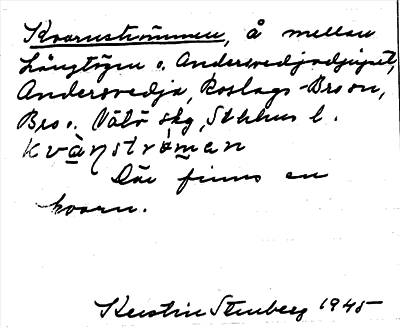 Kvarnströmmen, å mellan
Långtögen o. Andersvedjadjupet,
Andersvedja, Roslags-Bro sn,
Bro o. Vätö skg, Sthlms l.
kvānströman
Där finns en
kvarn.
Kerstin Stenberg 1945